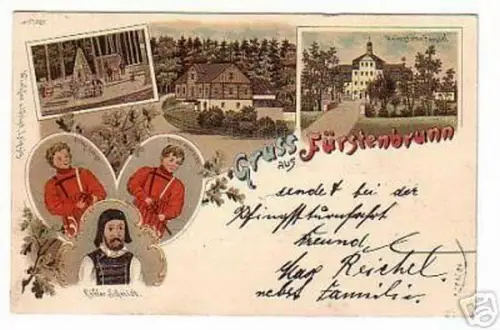 Gruss
aus
Fürstenbrunn
sendet bei der
Pfingstturnfahrt
Freund
Max Reichel.
nebst Familie.
Köhler Schmidt.